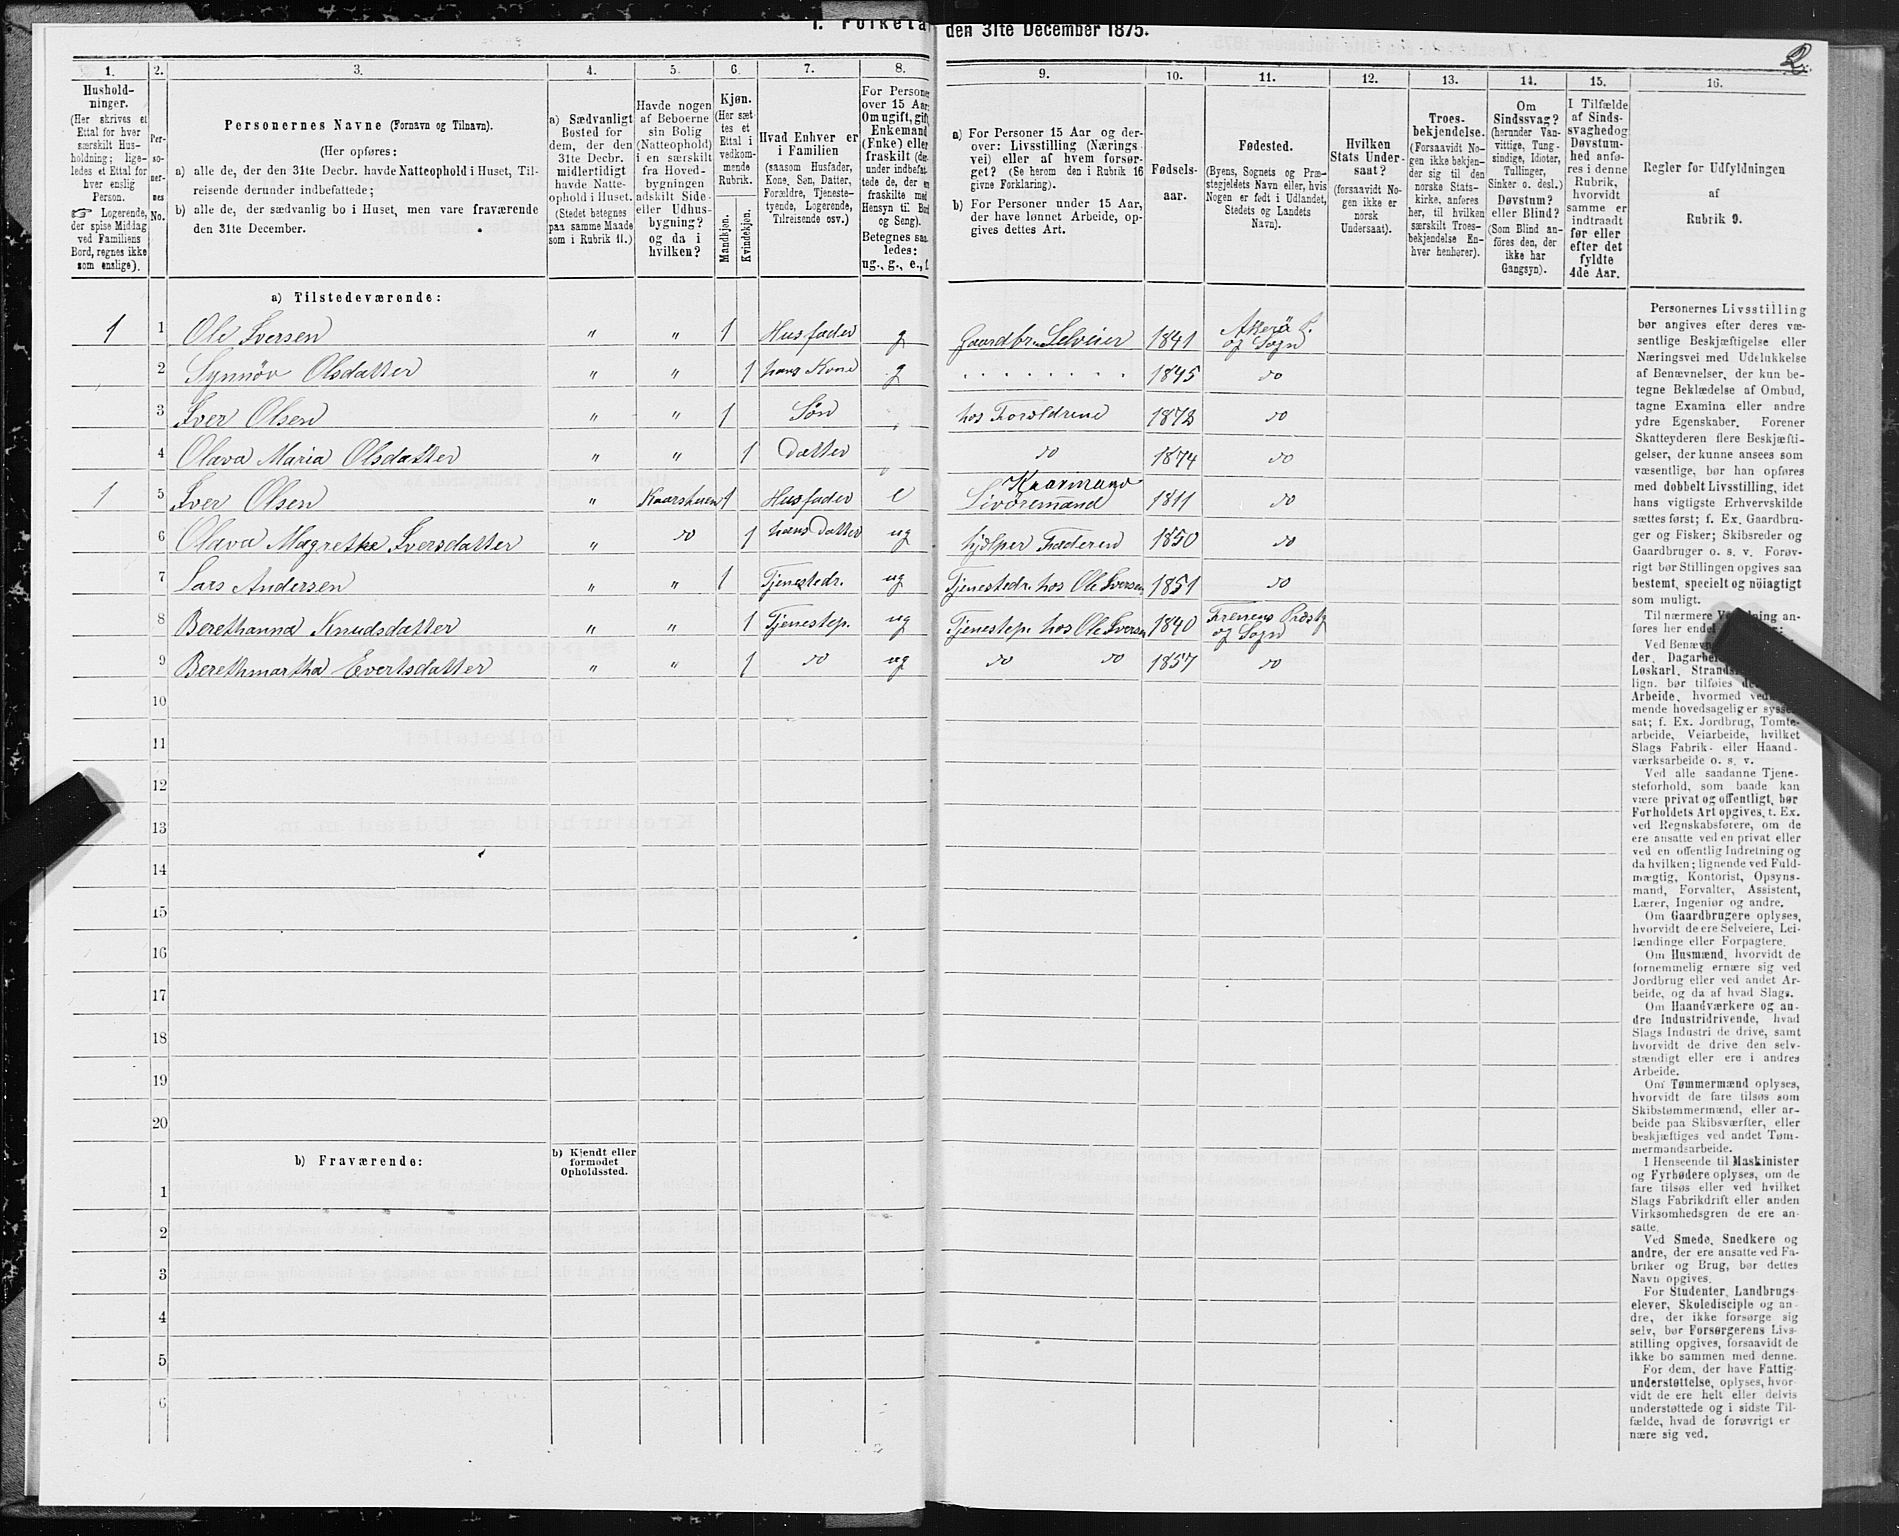 1. Folketæ den 31te December 1875.
2.
1. 2. 3. 4. 5. 6. 7. 8. 9. 10. 11. 12. 13. 14. 15. 16.
Hushold-
ninger.
(Her skrives et
Ettal for hver
særskilt Hus-
holdning; lige-
ledes et Ettal for
hver enslig
Person.
☞ Logerende,
der spise Middag
ved Familiens
Bord, regnes ikke
som enslige).
Per-
so-
ner-
nes
No.
Personernes Navne (Fornavn og Tilnavn).
(Her opføres:
a) alle de, der den 31te Decbr. havde Natteophold i Huset, Til-
reisende derunder indbefattede;
b) alle de, der sædvanlig bo i Huset, men vare fraværende
den 31te December.
a) Sædvanligt
Bosted for
dem, der den
31te Decbr.
midlertidigt
havde Natte-
ophold i Huset.
(Stedet betegnes
paa samme Maade
som i Rubrik 11.)
Havde nogen
af Beboerne
sin Bolig
(Natteophold)
i en særskilt
fra Hoved-
bygningen
adskilt Side-
eller Udhus-
bygning?
og da i
hvilken?
Kjøn.
(Her sæt-
tes et
Ettal i
vedkom-
mende
Rubrik.
Mandkjøn.
Kvindekjøn.
Hvad Enhver er
i Familien
(saasom Husfader,
Kone, Søn, Datter,
Forældre, Tjeneste-
tyende, Logerende,
Tilreisende osv.)
For Persone
over 15 Aar
Om ugift, gif
Enkemand
(Enke) eller
fraskilt (de
under indbefat-
tede de, der
fraskilte med
Hensyn til Bord
og Seng).
Betegnes saa
ledes:
ug., g., e., f
a) For Personer 15 Aar og der-
over: Livsstilling (Nærings-
vei) eller af hvem forsør-
get? (Se herom den i Rubrik 16
givne Forklaring).
b) For Personer under 15 Aar,
der have lønnet Arbeide, op-
gives dettes Art.
Fødsels-
aar.
Fødested.
(Byens, Sognets og Præ-
stegjeldets Navn eller, hvis
Nogen er født i Udlandet,
Stedets og Landets
Navn).
Hvilken
Stats Under-
saat?
(forsaavidt No-
gen ikke er
norsk
Undersaat).
Troes-
bekjendelse.
(Forsaavidt No-
gen ikke bekjen-
der sig til den
norske Stats-
kirke, anføres
her, til hvilken
særskilt Troes-
bekjendelse En-
hver henhører).
Om
Sindssvag?
(herunder Van-
vittige, Tung-
sindige, Idioter,
Tullinger,
Sinker o. desl.)
Døvstum?
eller Blind?
(Som Blind an-
føres den, der
ikke har
Gangsyn).
I Tilfælde
af Sinds-
svaghed og
Døvstum-
hed anfø-
res i denne
Rubrik,
hvorvidt
samme er
indtraadt
før eller
efter det
fyldte
4de Aar.
Regler for Udfyldningen
af
Rubrik 9.
a) Tilstedeværende:
1 1 Ole Iversen " " 1 Husfader g Gaardbr. Selveier 1841 Akerö P. og Sogn
2 Synnöv Olsdatter " " 1 hans Kone g . . . . . . . . 1845 do
3 Iver Olsen " " 1 Søn hos Foreldrene 1872 do
4 Olava Maria Olsdatter " " 1 Datter do 1874 do
1 5 Iver Olsen " Kaarstuen 1 Husfader e Kaarmand 1811 do
6 Olava Magretha Iversdatter " do 1 hans Datter ug hjelper Faderen 1850 do
7 Lars Andersen " " 1 Tjenestedr. ug Tjenestedr. hos Ole Iversen 1851 do
8 Berethanna Knudsdatter " " 1 Tjenestep. ug Tjenestep. hos Ole Iversen 1840 Frænens Prdstg og Sogn
9 Berethmartha Evertsdatter " " 1 do ug do do 1857 do
10
11
12
13
14
15
16
17
18
19
20
b) Fraværende:
b) Kjendt eller
formodet
Opholdssted.
1
2
3
4
5
6
Personernes Livsstilling
bør angives efter deres væ-
sentlige Beskjæftigelse eller
Næringsvei med Udelukkelse
af Benævnelser, der kun be-
tegne Beklædelse af Ombud,
tagne Examina eller andre
ydre Egenskaber. Forener
Skatteyderen flere Beskjæfti-
gelser, der kunne ansees som
væsentlige, bør han opføres
med dobbelt Livsstilling, idet
hans vigtigste Erhvervskilde
sættes først; f. Ex. Gaardbru-
ger og Fisker; Skibsreder og
Gaardbruger o. s. v. Forøv-
rigt bør Stillingen opgives saa
bestemt, specielt og nöiagtigt
som muligt.
Til nærmere Ve ning an-
føres her endel :
Ved Benævn
der, Dagarbei
Løskarl, Strands
lign. bør tilføies de
Arbeide, hvormed ved
mende hovedsagelig er syssel-
sat; f. Ex. Jordbrug, Tomte-
arbeide, Veiarbeide, hvilket
Slags Fabrik- eller Haand-
værksarbeide o. s. v.
Ved alle saadanne Tjene-
steforhold, som baade kan
være privat og offentligt, bør
Forholdets Art opgives, t. Ex.
ved Regnskabsførere, om de
ere ansatte ved en privat eller
ved en offentlig Indretning og
da hvilken; lignende ved Fuld-
mægtig, Kontorist, Opsyns-
mand, Forvalter, Assistent,
Lærer, Ingeniør og andre.
Om Gaardbrugere oplyses,
hvorvidt de ere Selveiere, Lei-
lændinge eller Forpagtere.
Om Husmænd, hvorvidt de
fornemmelig ernære sig ved
Jordbrug eller ved andet Ar-
beide, og da af hvad Slags.
Om Haandværkere og an-
dre Industridrivende, hvad
Slags Industri de drive, samt
hvorvidt de drive den selv-
stændigt eller ere i andres
Arbeide.
Om Tømmermænd oplyses,
hvorvidt de fare tilsøs som
Skibstømmermænd, eller ar-
beide paa Skibsværfter, eller
beskjæftiges ved andet Tøm-
mermandsarbeide.
I Henseende til Maskinister
og Fyrbødere oplyses, om de
fare tilsøs eller ved hvilket
Slags Fabrikdrift eller anden
Virksomhedsgren de ere an-
satte.
Ved Smede, Snedkere og
andre, der ere ansatte ved Fa-
briker og Brug, bør dettes
Navn opgives.
For Studenter, Landbrugs-
elever, Skoledisciple og an-
dre, der ikke forsørge sig
selv, bør Forsørgerens Livs-
stilling opgives, forsaavidt de
ikke bo sammen med denne.
For dem, der have Fattig-
understøttelse, oplyses, hvor-
vidt de ere helt eller delvis
understøttede og i sidste Til-
fælde, hvad de forøvrigt er
nære sig ved.